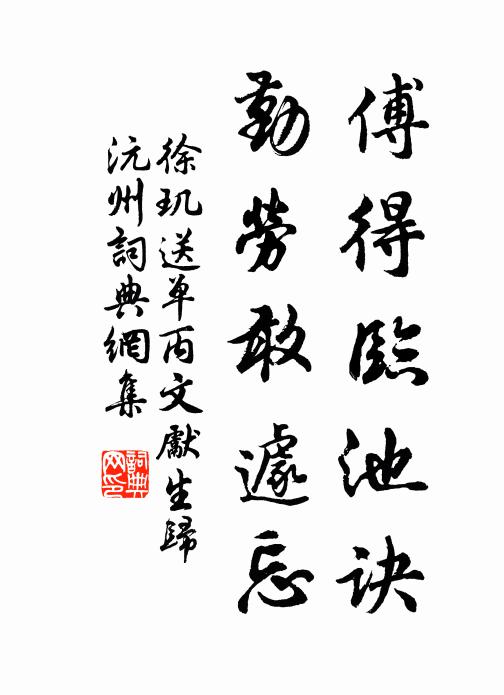 傅得臨池訣
勤勞敢遽忘
徐玑送单丙文獻生歸
沅州詞典網集
詞典网印